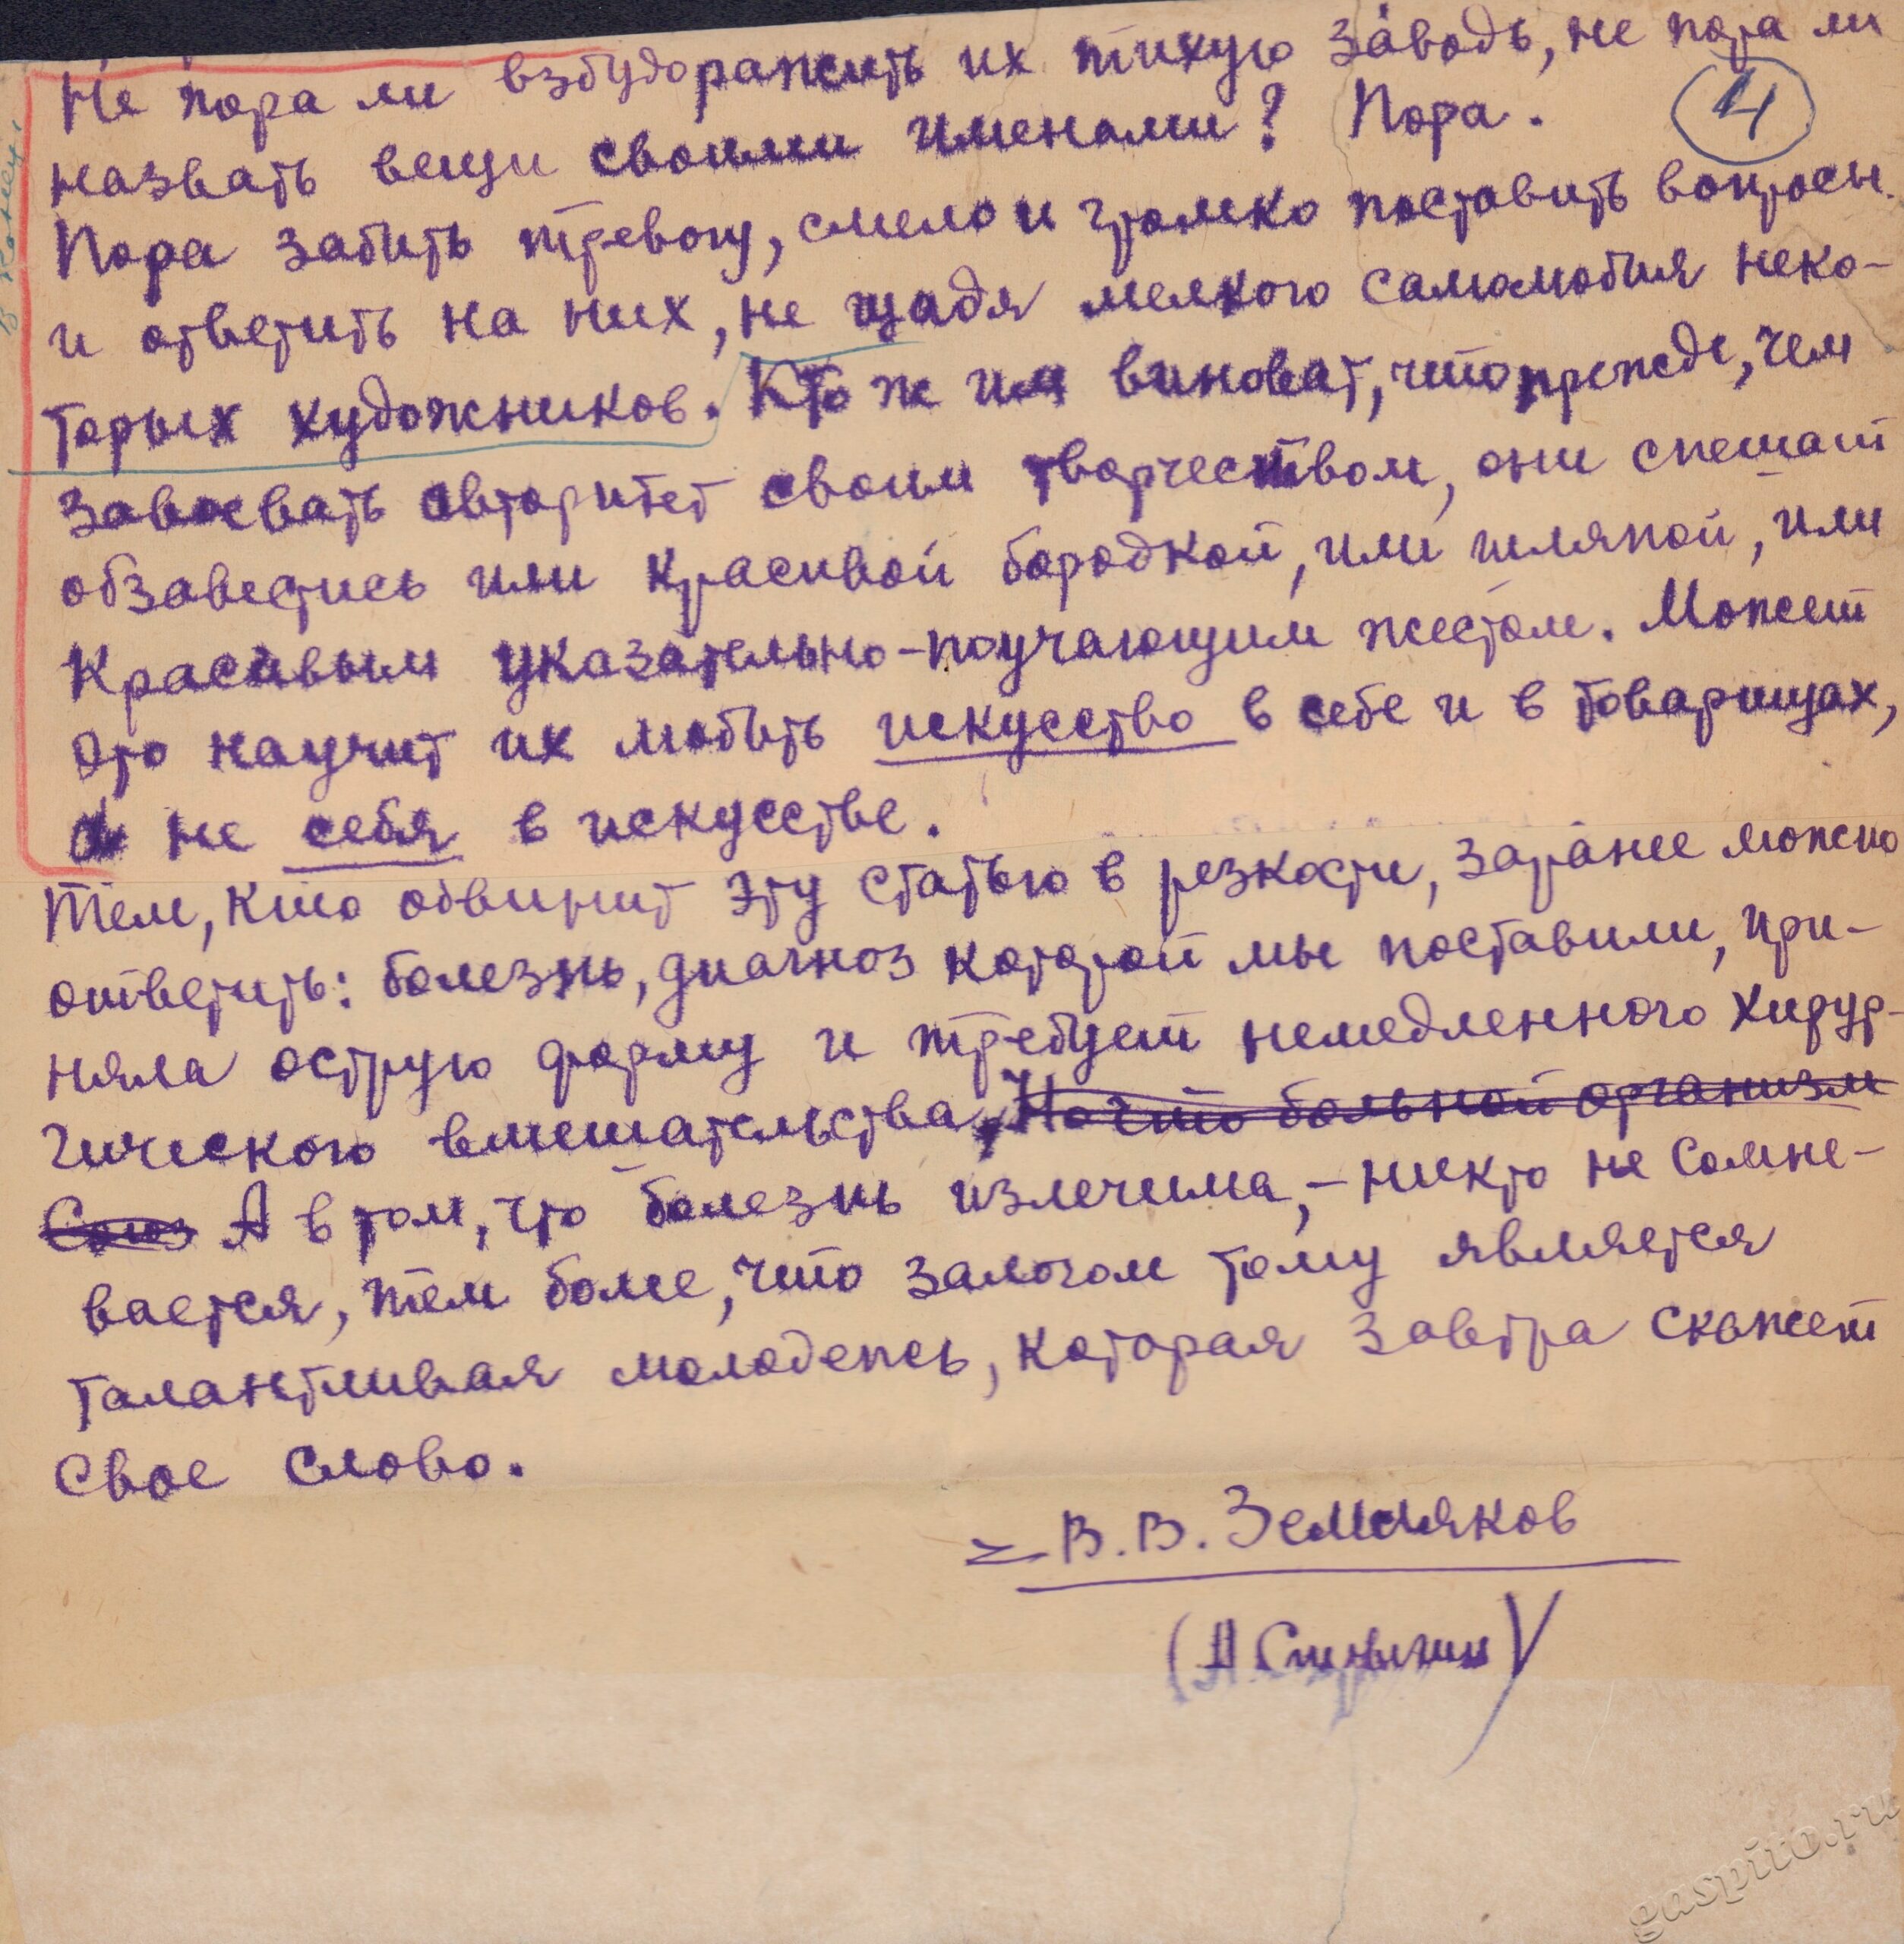 Не пора ли взбудоражить их тихую заводь, не пора ли
4
назвать вещи своими именами? Пора.
Пора забить тревогу, смело и громко поставить вопросы
и ответить на них, не щадя мелкого самолюбия неко-
торых художников. Кто ж им виноват, что прежде, чем
завоевать авторитет своим творчеством, они спешат
обзавестись или красивой бородкой, или шляпой, или
красивым указательно-поучающим жестом. Может
это научит их любить искусство в себе и в товарищах,
а не себя в искусстве.
Тем, кто обвинит эту статью в резкости, заранее можно
ответить: болезнь, диагноз которой мы поставили, при-
няла острую форму и требует немедленного хирур-
гического вмешательства. Но что больной организм
Союз А в том, что болезнь излечима, – никто не сомне-
вается, тем более, что залогом тому является
талантливая молодежь, которая завтра скажет
свое слово.
В. В. Земляков
gaspito.ru